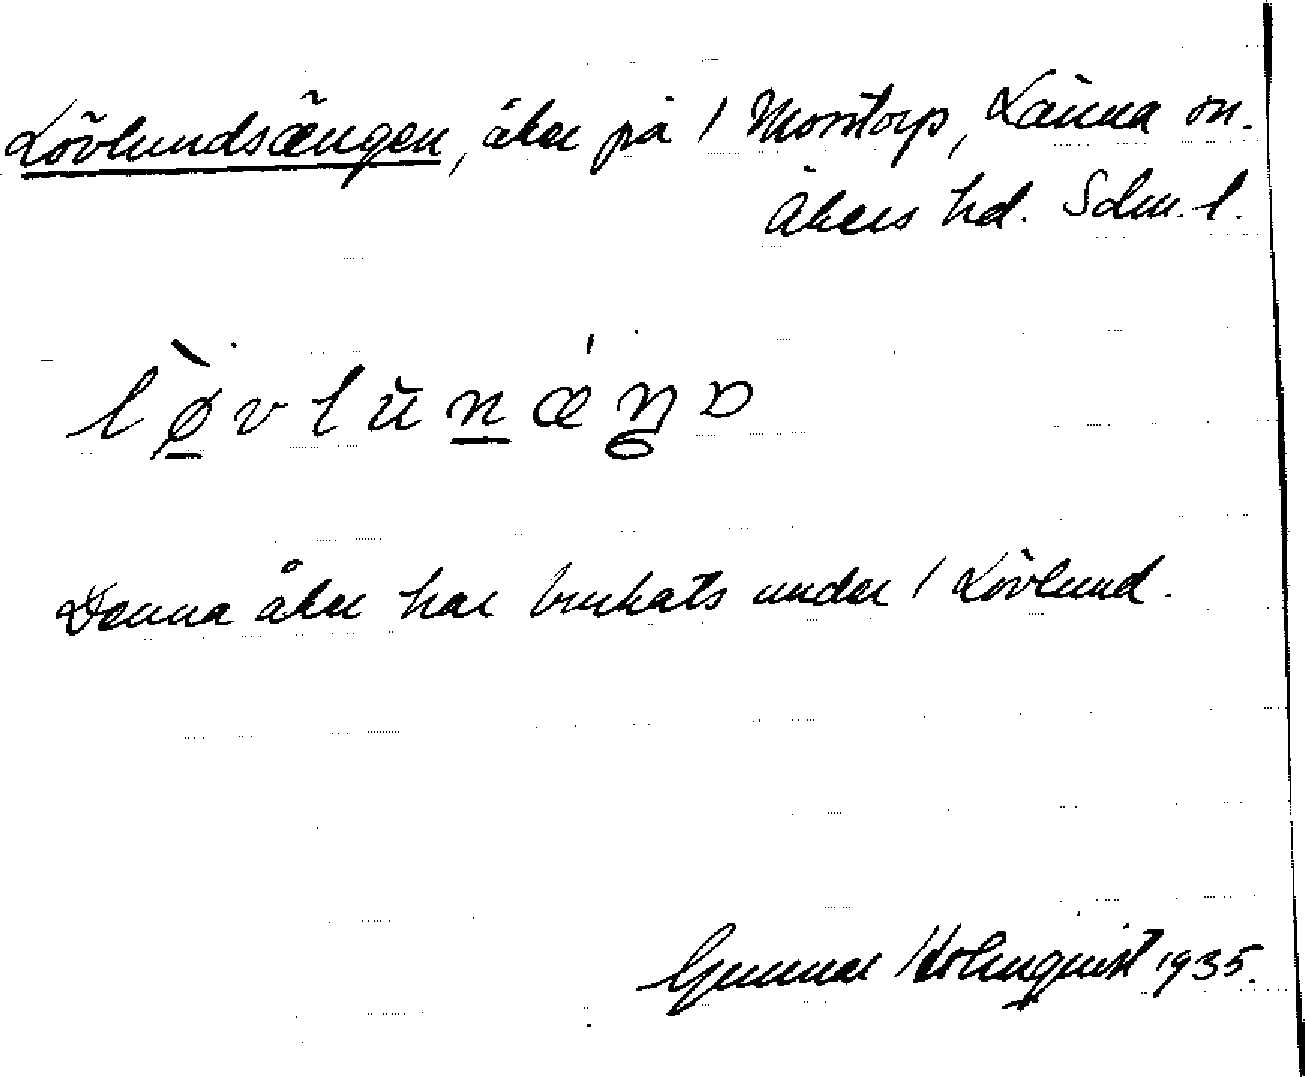 Lövlundsängen, åker på / Morrtorp, Länna sn.
Åkers hd. Sdm. l.
lø̀vlŭnǽŋɒ
Denna åker har brukats under / Lövlund.
Gunnar Holmquist 1935.